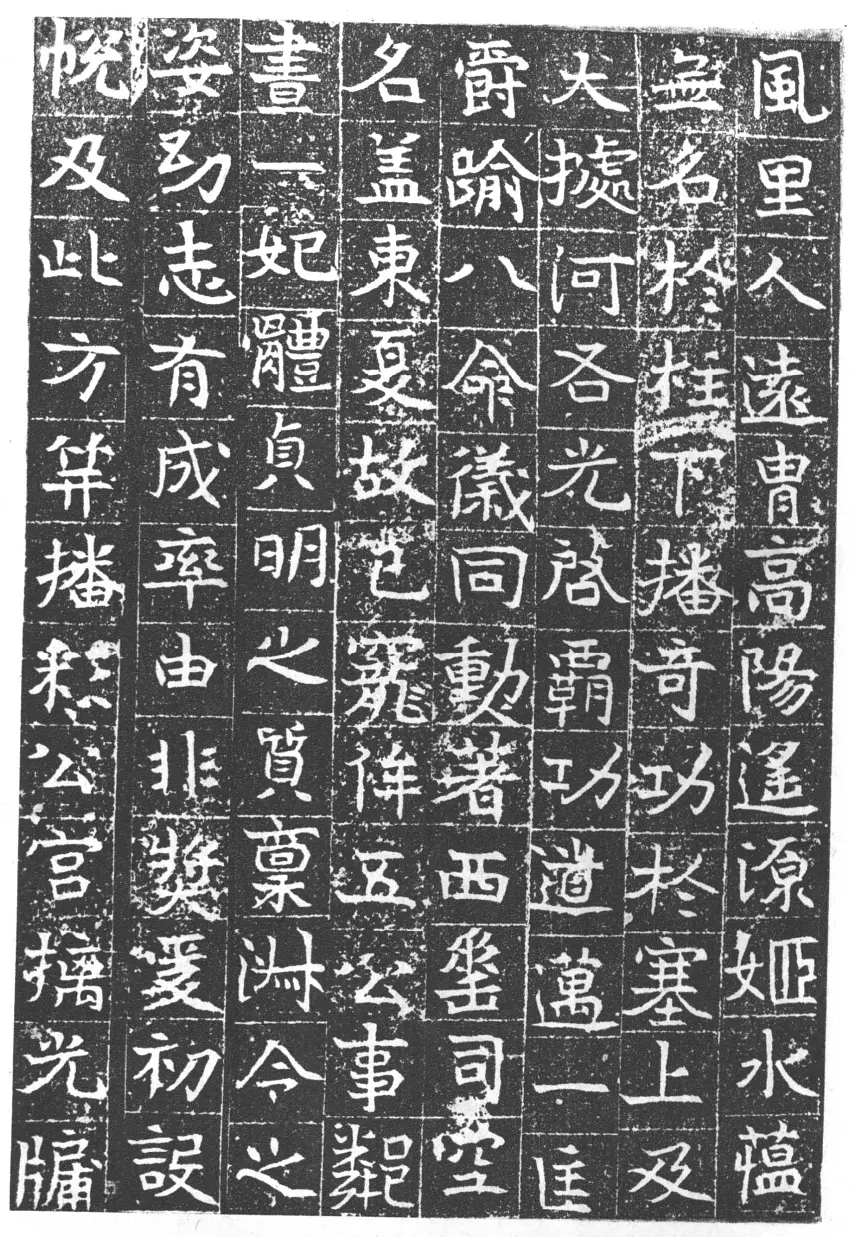 風里人遠胄高陽遙源姬水蘊
無名於柱下播奇功於塞上及
大據河右光啓霸功道邁一匡
爵踰八命徽同動著西垂司空
名盖東夏故已寵侔五公事鄰
晝一妃體貞明之質稟淑令之
姿幼志有成率由非奬爰初設
帨及此方笄播彩公宮摛光牖